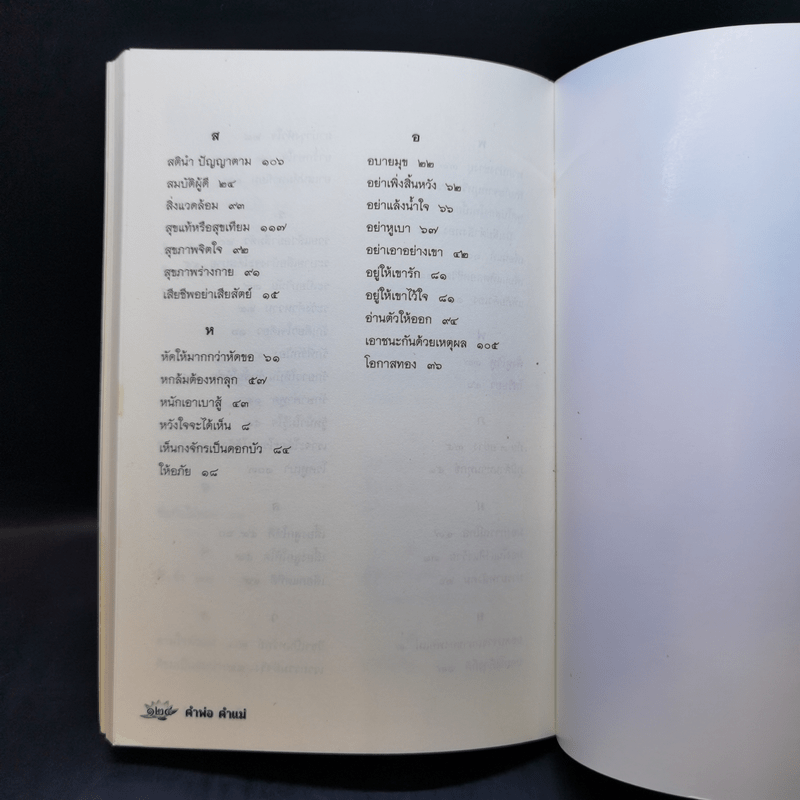 ส
สตินำ ปัญญาตาม ๑๐๖
สมบัติผู้ดี ๒๔
สิ่งแวดล้อม ๙๓
สุขแท้หรือสุขเทียม ๑๑๗
สุขภาพจิตใจ ๙๒
สุขภาพร่างกาย ๙๑
เสียชีพอย่าเสียสัตย์ ๑๕
ห
หัดให้มากกว่าหัดขอ ๖๑
หกล้มต้องหกลุก ๕๗
หนักเอาเบาสู้ ๔๓
หวังใจจะได้เห็น ๘
เห็นกงจักรเป็นดอกบัว ๘๔
ให้อภัย ๑๘
อ
อบายมุข ๒๒
อย่าเพิ่งสิ้นหวัง ๖๒
อย่าแล้งน้ำใจ ๖๖
อย่าหูเบา ๖๗
อย่าเอาอย่างเขา ๔๒
อยู่ให้เขารัก ๘๑
อยู่ให้เขาไว้ใจ ๘๑
อ่านตัวให้ออก ๙๔
เอาชนะกันด้วยเหตุผล ๑๐๕
โอกาสทอง ๓๖
๑๒๔ คำพ่อ คำแม่